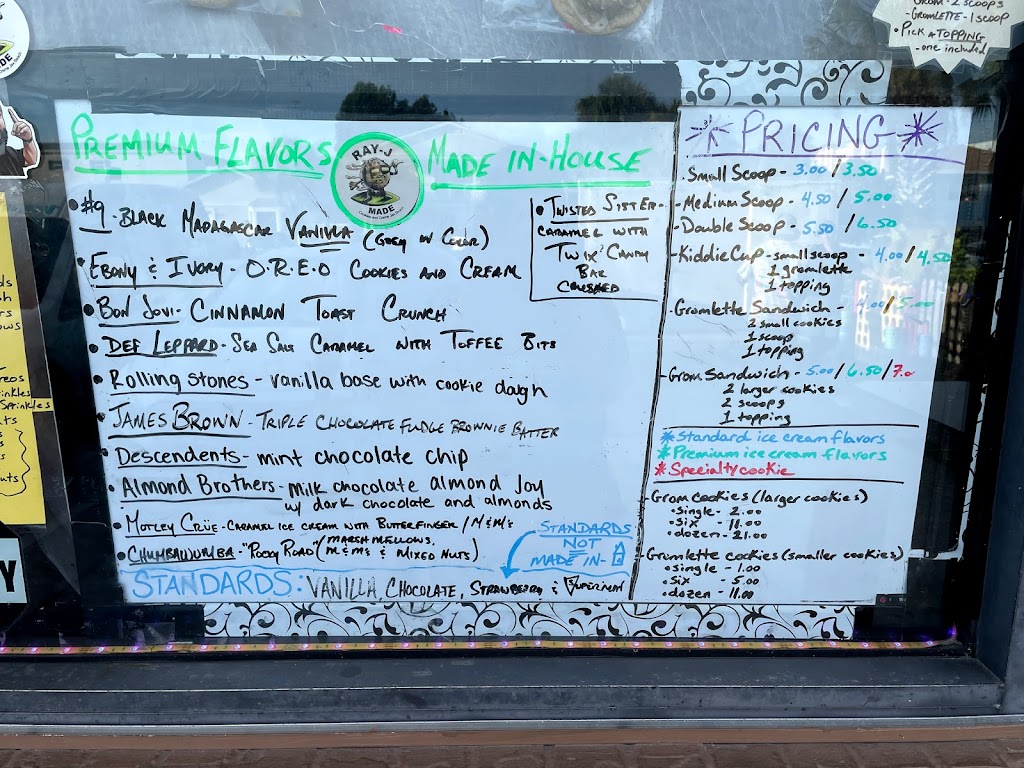 GROM - 2 scoops
- GROMLETTE - 1 scoop
• PICK A TOPPING
- one included
MADE
PREMIUM FLAVORS
RAY-J
MADE
MADE IN-HOUSE
• #9 - BLACK MADAGASCAR VANILLA (GREY IN COLOR)
• EBONY & IVORY - O.R.E.O COOKIES AND CREAM
• BON JOVI - CINNAMON TOAST CRUNCH
• DEF LEPPARD - SEA SALT CARAMEL WITH TOFFEE BITS
• Rolling Stones - vanilla base with cookie dough
• JAMES BROWN - TRIPLE CHOCOLATE FUDGE BROWNIE BATTER
• Descendents - mint chocolate chip
• Almond Brothers - milk chocolate almond Joy
w/ dark chocolate and almonds
• MOTLEY CRÜE - CARAMEL ICE CREAM WITH BUTTERFINGER / M&M's
• CHUMBAWUMBA - "ROCKY ROAD" (MARSHMELLOWS,
M&M's & MIXED NUTS)
• TWISTED SISTER -
CARAMEL WITH
TWIX CANDY
BAR
CRUSHED
STANDARDS
NOT
MADE IN-
STANDARDS: VANILLA, CHOCOLATE, STRAWBERRY & SUPERMAN
PRICING
- Small Scoop - 3.00 / 3.50
- Medium Scoop - 4.50 / 5.00
- Double Scoop - 5.50 / 6.50
- Kiddie Cup - small scoop - 4.00 / 4.50
1 gromlette
1 topping
- Gromlette Sandwich - 4.00 / 5.00
2 small cookies
1 scoop
1 topping
- Grom Sandwich - 5.00 / 6.50 / 7.0
2 larger cookies
2 scoops
1 topping
* Standard ice cream flavors
* Premium ice cream flavors
* Specialty cookie
- Grom cookies (larger cookies)
• single - 2.00
• six - 11.00
• dozen - 21.00
- Gromlette cookies (smaller cookies)
• single - 1.00
• six - 5.00
• dozen - 11.00